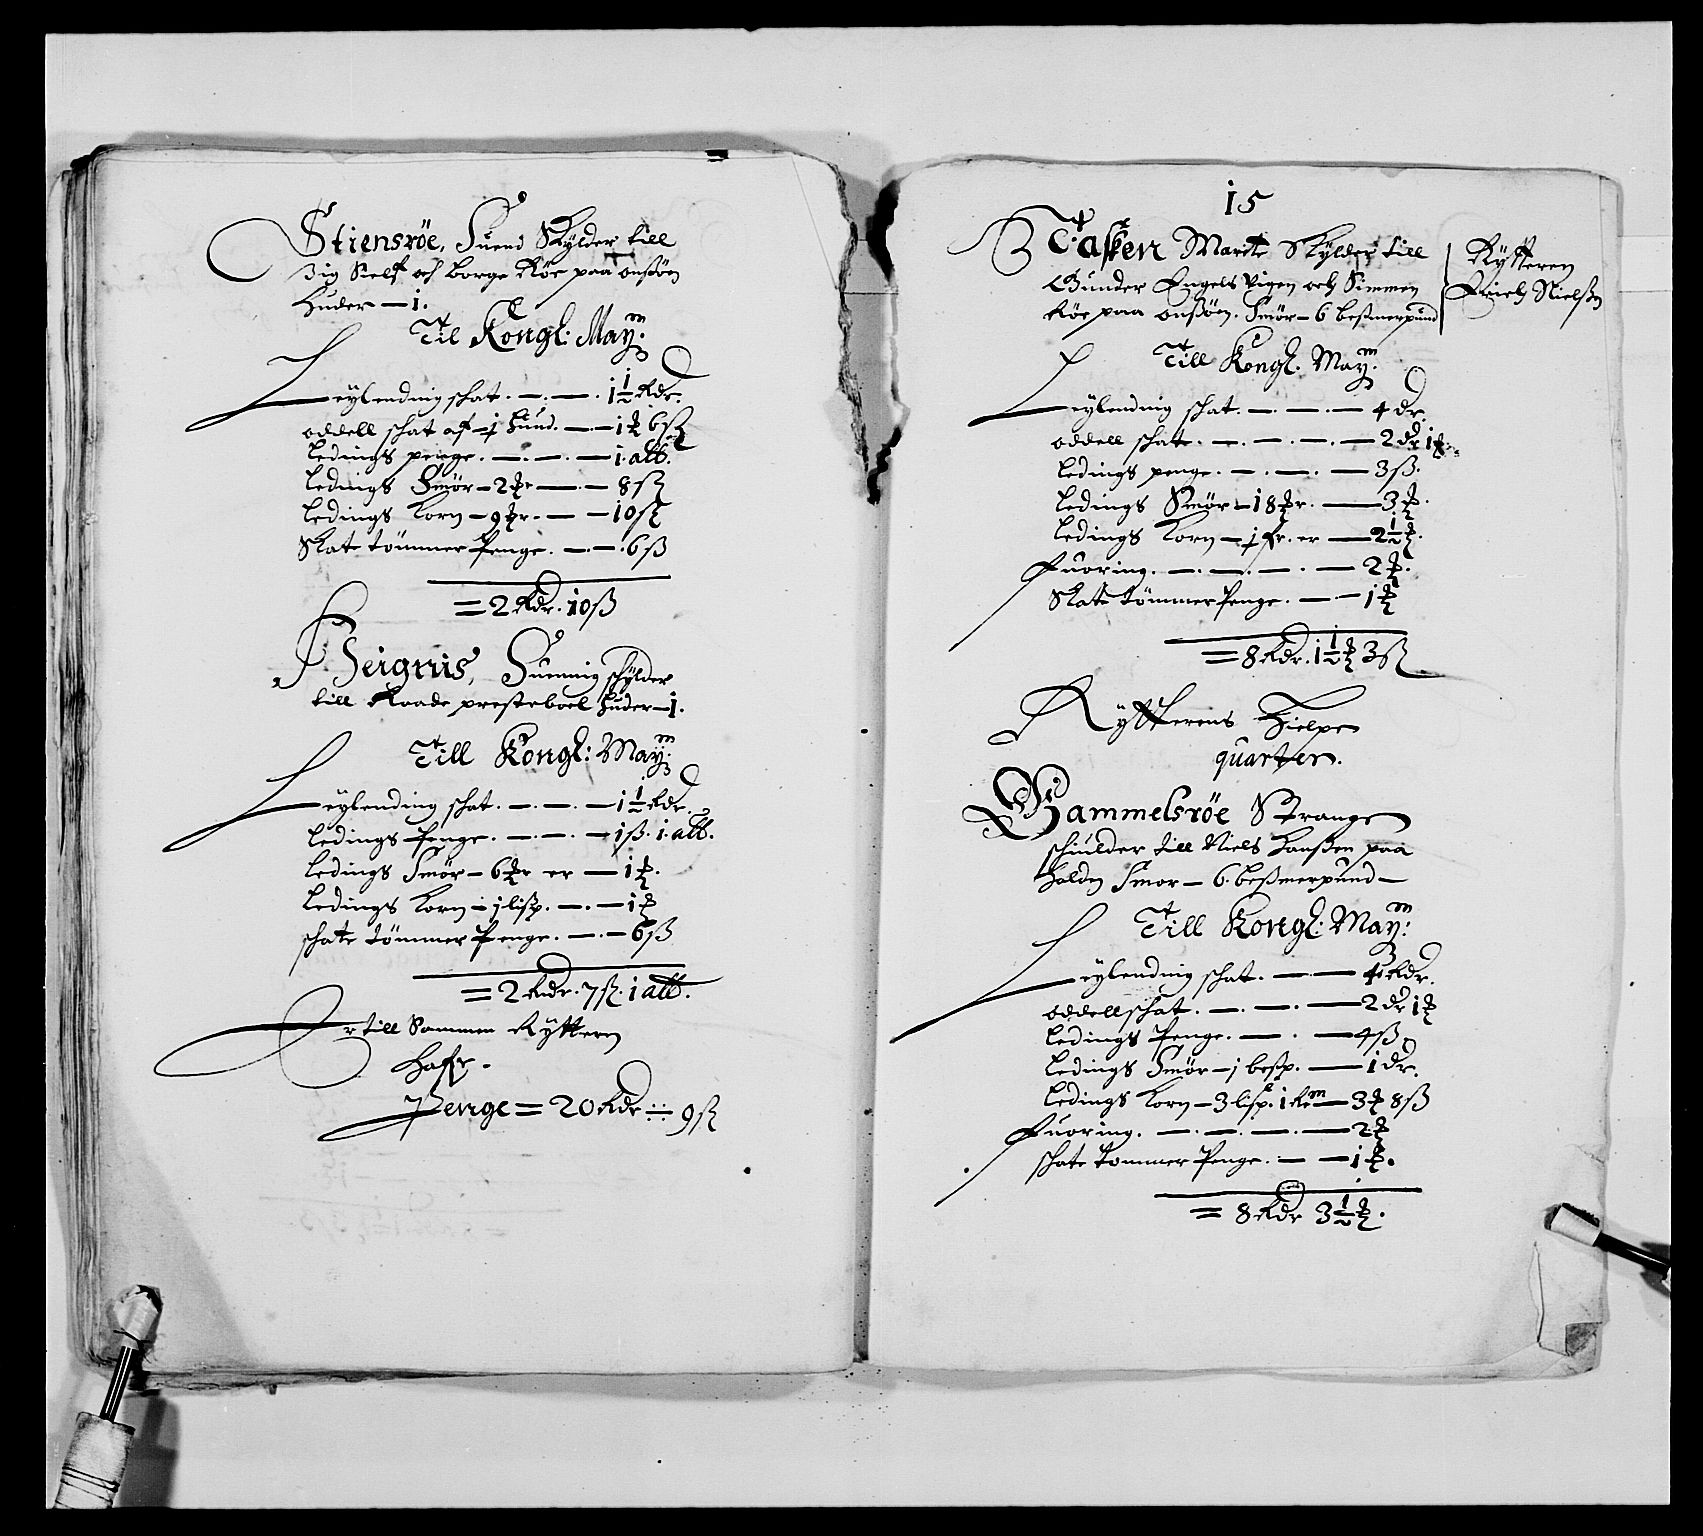 Stiensröe, Suend Skylder till
Sig Self och Borge Röe paa onsöen
Huder — 1.
Til Kongl: May:
Leylending schat. —. —. 1½ Rdr.
oddell schat af — j Hund. —. — 1 ₰ 6 ß
Ledings penge. —. —. — 1. alb.
Ledings Smör — 2 ₰r —. — 8 ß
Ledings Korn — 9 ₰r. — — 10 ß
Skate tömmer Penge. —. —. 6 ß
= 2 Rdr. 10 ß
Heignis, Suennig schylder
till Raade presteboel Huder — 1.
Till Kongl: May:
Leylending schat. —. —. — 1½ Rdr.
Ledings Penge. —. —. — 1 ß. 1. alb.
Ledings Smör — 6 ₰r er — 1 ₰.
Ledings Korn — j lisp. —. — 1 ₰
schatte tömmer Penge. —. — 6 ß
= 2 Rdr. 7 ß. 1 alb.
Er till Sammen Rytteren
Hafr.
Penge = 20 Rdr ÷ 9 ß
15
Tasken Marte Skylder till
Gunder Engelsvigen och Simmen
Röe paa onsöen. Smör — 6 besmerpund
Rytteren
Erich Nielsen
Till Kongl. May:
Leylending schat. —. —. — 4 dr.
oddell schat. —. —. —. — 2 dr 1 ₰.
Ledings penge. —. —. — 3 ß.
Ledings Smör — 18 ₰r. — 3 ₰.
Ledings Korn — j fr. er — 2½ ₰.
Fuoring. —. —. —. — 2 ₰.
Skatte tömmer Penge. — — 1 ₰
= 8 Rdr. 1½ ₰ 3 ß
Rytterens Hielpe
quarter.
Gammelsröe Strange
schiulder till Niels Hansen paa
Halden Smor — 6. besmerpund —
Till Kongl: May:
Leylending schat. —. — 4 Rdr.
oddell schat. —. —. — 2 dr 1 ₰
Ledings Penge. —. — 4 ß
Ledings Smör — j besp. — 1 dr.
Ledings Korn — 3 lisp. 1 — 3 ₰ 8 ß
Fuoring. —. —. —. — 2 ₰
schate tommer Penge. — — 1 ₰.
= 8 Rdr 3½ ₰.